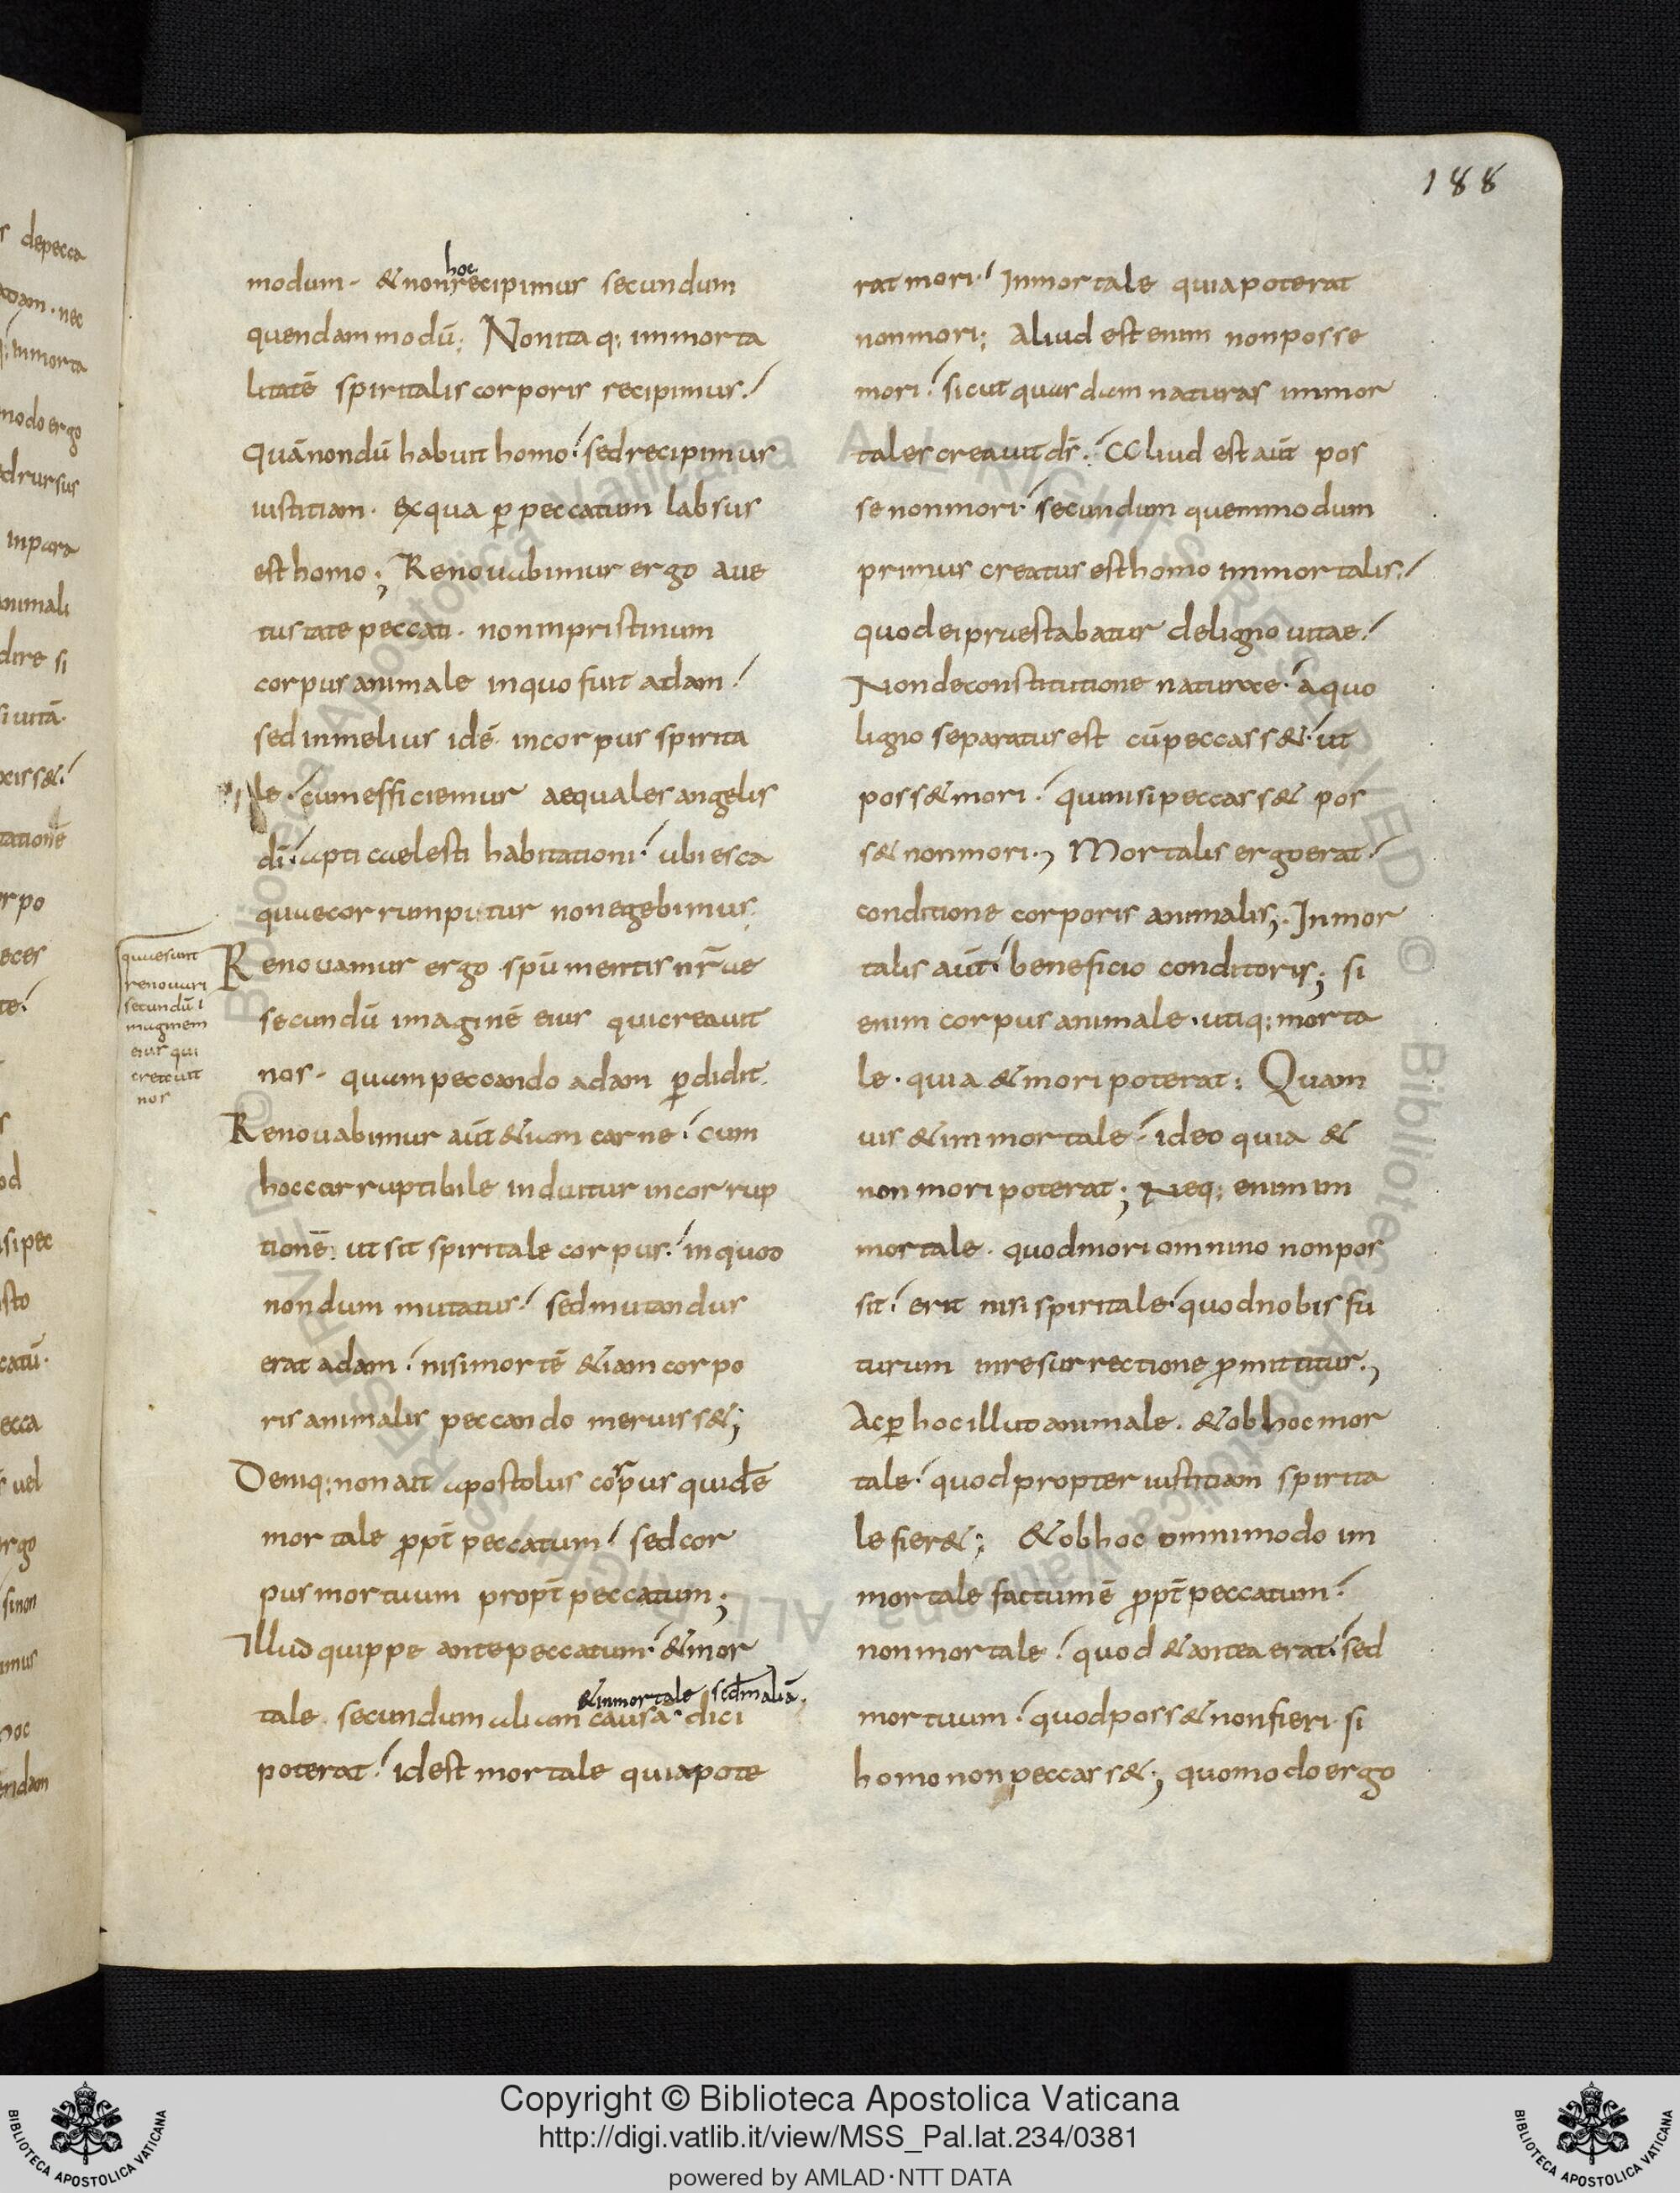 188
hoc
modum. & non recipimur secundum
quendam modū; Non itaq; immorta
litatē spiritalis corporis recipimus.
quā nondū habuit homo. sed recipimus
iustitiam. ex qua p̲ peccatum labsus
est homo; Renovabimur ergo a ue
tustate peccati. non in pristinum
corpus animale in quo fuit adam.
sed in melius idē. in corpus spirita
le. cum efficiemur aequales angelis
dī. apti caelesti habitationi. ubi esca
quae corrumpitur non egebimus;
Renovamur ergo spū mentis nr̄ae
secundū imaginē eius qui creavit
nos. quam peccando adam p̲didit.
Renovabimur aūt &iam carne. cum
hoc corruptibile induitur incorrup
tionē. ut sit spiritale corpus. in quod
nondum mutatus. sed mutandus
erat adam. nisi mortē &iam corpo
ris animalis peccando meruiss&;
Deniq; non ait apostolus corpus quidē
mortale pp̄t peccatum. sed cor
pus mortuum propt̄ peccatum;
Illud quippe ante peccatum. & mor
& inmortale scdm aliā.
tale. secundum aliam causā. dici
poterat. id est mortale quia pote
quae sunt
renouari
secundū i
maginem
eius qui
creauit
nos
rat mori. Inmortale quia poterat
non mori; Aliud est enim non posse
mori. sicut quasdam naturas immor
tales creauit dr̄. Aliud est aūt pos
se non mori. secundum quem modum
primus creatus est homo immortalis.
quod ei praestabatur de ligno uitae.
Non de constitutione naturae. a quo
ligno separatus est cū peccass&. ut
poss& mori. qui nisi peccass& pos
s& non mori; Mortalis ergo erat.
conditione corporis animalis; Inmor
talis aūt. beneficio conditoris; si
enim corpus animale. utiq; morta
le. quia & mori poterat; Quam
uis & immortale. ideo quia &
non mori poterat; Neq; enim im
mortale. quod mori omnino non pos
sit. erit nisi spiritale. quod nobis fu
turum in resurrectione p̲mittitur;
Ac p̲ hoc illud animale. & ob hoc mor
tale. quod propter iustitiam spirita
le fier&; & ob hoc omnimodo im
mortale factum ē pp̄t peccatum.
non mortale. quod & antea erat. sed
mortuum. quod poss& non fieri. si
homo non peccass&; quomodo ergo
Copyright © Biblioteca Apostolica Vaticana
http://digi.vatlib.it/view/MSS_Pal.lat.234/0381
powered by AMLAD·NTT DATA